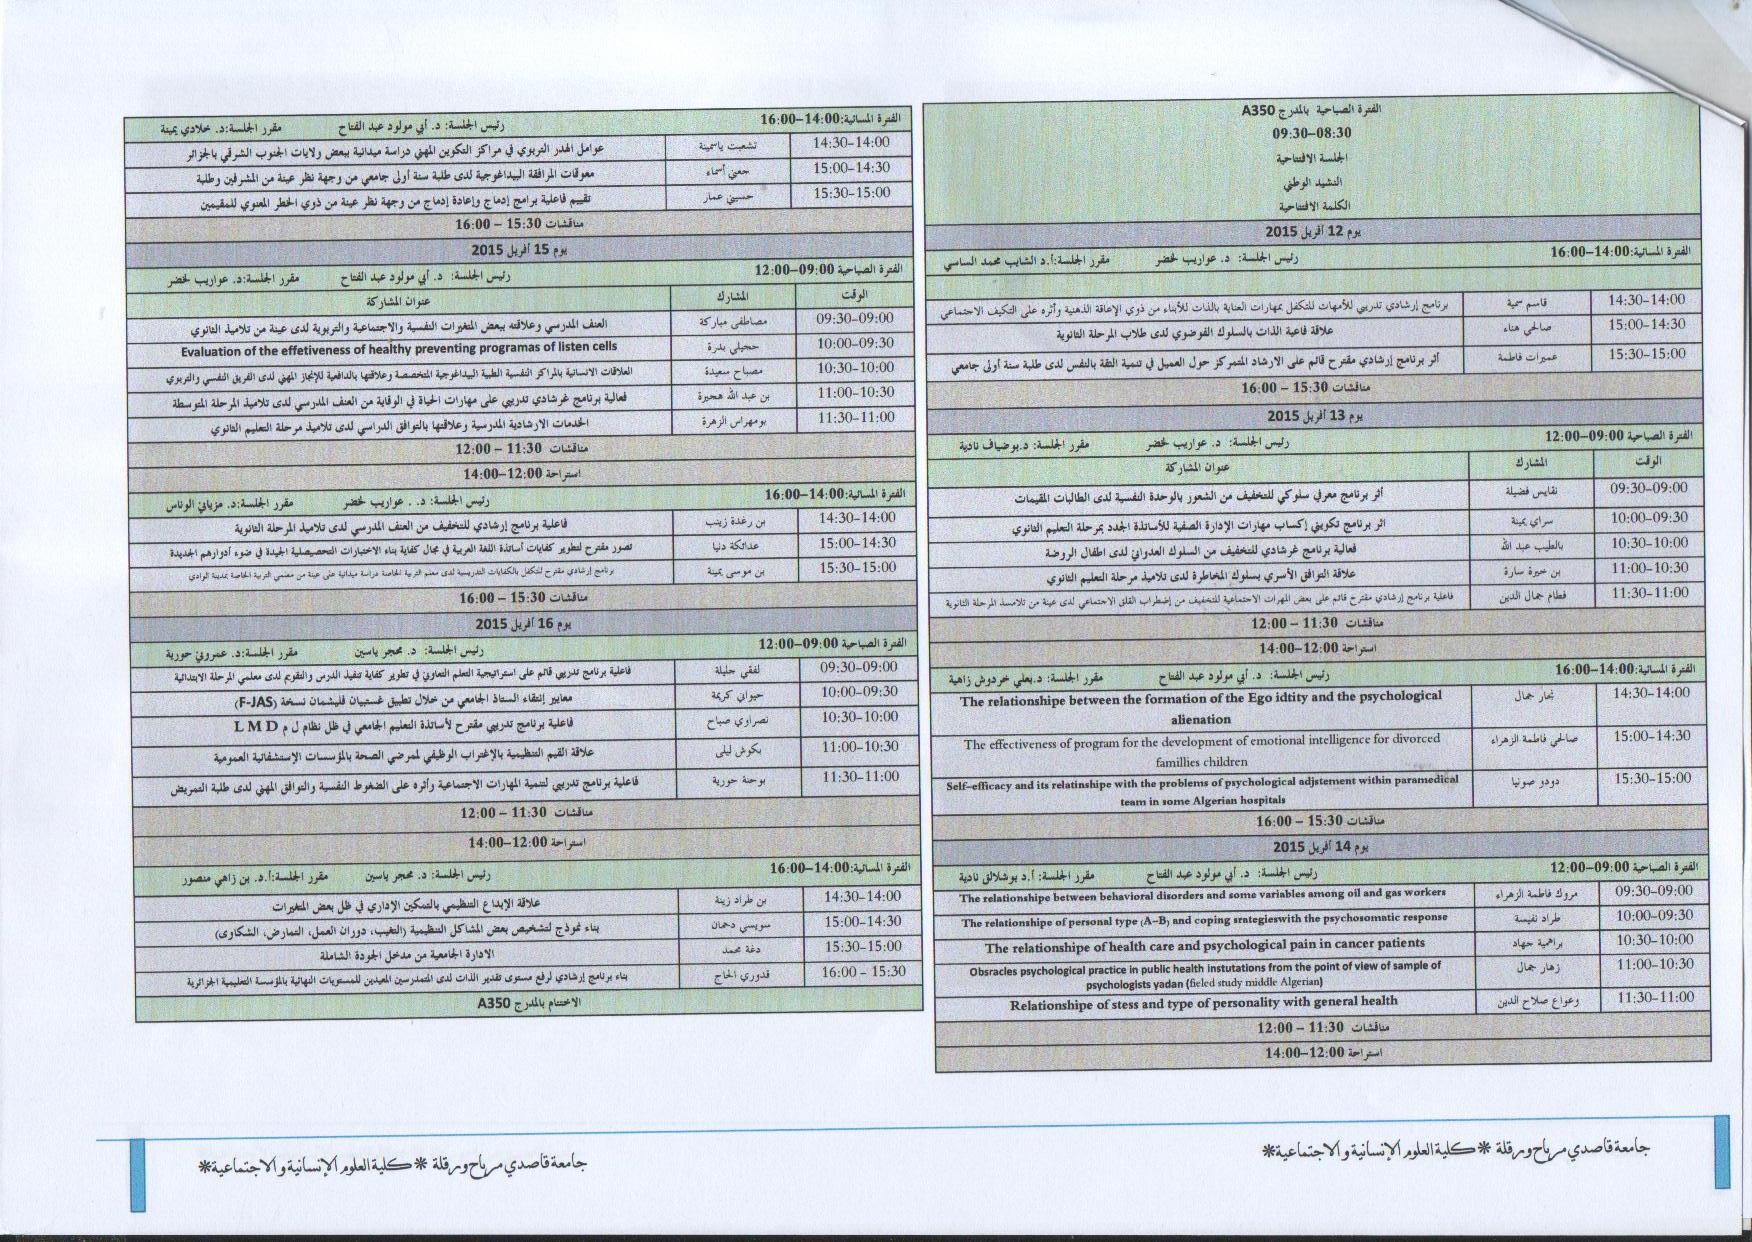 الفترة الصباحية بالمدرج A350
09:30–08:30
الجلسة الافتتاحية
النشيد الوطني
الكلمة الافتتاحية
يوم 12 أفريل 2015
الفترة المسائية:14:00–16:00 رئيس الجلسة: د. عواريب لخضر مقرر الجلسة:أ.د الشايب محمد الساسي
14:30–14:00 قاسم سمية برنامج إرشادي تدريبي للأمهات للتكفل بمهارات العناية بالذات للأبناء من ذوي الإعاقة الذهنية وأثره على التكيف الاجتماعي
15:00–14:30 صالحي هناء علاقة فاعية الذات بالسلوك الفوضوي لدى طلاب المرحلة الثانوية
15:30–15:00 عميرات فاطمة أثر برنامج إرشادي مقترح قائم على الارشاد المتمركز حول العميل في تنمية الثقة بالنفس لدى طلبة سنة أولى جامعي
مناقشات 15:30 – 16:00
يوم 13 أفريل 2015
الفترة الصباحية 09:00–12:00 رئيس الجلسة: د. عواريب لخضر مقرر الجلسة: د.بوضياف نادية
الوقت المشارك عنوان المشاركة
09:30–09:00 نقايس فضيلة أثر برنامج معرفي سلوكي للتخفيف من الشعور بالوحدة النفسية لدى الطالبات المقيمات
10:00–09:30 سراي يمينة اثر برنامج تكويني إكساب مهارات الإدارة الصفية للأساتذة الجدد بمرحلة التعليم الثانوي
10:30–10:00 بالطيب عبد الله فعالية برنامج غرشادي للتخفيف من السلوك العدواني لدى اطفال الروضة
11:00–10:30 بن حيرة سارة علاقة التوافق الأسري بسلوك المخاطرة لدى تلاميذ مرحلة التعليم الثانوي
11:30–11:00 فطام جمال الدين فاعلية برنامج إرشادي مقترح قائم على بعض المهرات الاجتماعية للتخفيف من إضطراب القلق الاجتماعي لدى عينة من تلاميذ المرحلة الثانوية
مناقشات 11:30 – 12:00
استراحة 12:00–14:00
الفترة المسائية:14:00–16:00 رئيس الجلسة: د. أبي مولود عبد الفتاح مقرر الجلسة: د.يعلي خردوش زاهية
14:30–14:00 نجار جمال The relationship between the formation of the Ego idtity and the psychological
alienation
15:00–14:30 صالحي فاطمة الزهراء The effectiveness of program for the development of emotional intelligence for divorced
famillies children
15:30–15:00 دودو صونيا Self–efficacy and its relatinshipe with the problems of psychological adjstement within paramedical
team in some Algerian hospitals
مناقشات 15:30 – 16:00
يوم 14 أفريل 2015
الفترة الصباحية 09:00–12:00 رئيس الجلسة: د. أبي مولود عبد الفتاح مقرر الجلسة: أ.د بوشلالق نادية
09:30–09:00 مروك فاطمة الزهراء The relationshipe between behavioral disorders and some variables among oil and gas workers
10:00–09:30 طراد نفيسة The relationshipe of personal type (A–B) and coping srategieswith the psychosomatic response
10:30–10:00 براهمية جهاد The relationshipe of health care and psychological pain in cancer patients
11:00–10:30 زهار جمال Obsracles psychological practice in public health instutations from the point of view of sample of
psychologists yadan (fieled study middle Algerian)
11:30–11:00 وعواع صلاح الدين Relationshipe of stess and type of personality with general health
مناقشات 11:30 – 12:00
استراحة 12:00–14:00
جامعة قاصدي مرباح ورقلة * كلية العلوم الإنسانية والاجتماعية*
الفترة المسائية:14:00–16:00 رئيس الجلسة: د. أبي مولود عبد الفتاح مقرر الجلسة:د. خلادي يمينة
14:30–14:00 تشعبت ياسمينة عوامل الهدر التربوي في مراكز التكوين المهني دراسة ميدانية ببعض ولايات الجنوب الشرقي بالجزائر
15:00–14:30 جعني أسماء معوقات المرافقة البيداغوجية لدى طلبة سنة أولى جامعي من وجهة نظر عينة من المشرفين وطلبة
15:30–15:00 حسيني عمار تقييم فاعلية برامج إدماج وإعادة إدماج من وجهة نظر عينة من ذوي الخطر المعنوي للمقيمين
مناقشات 15:30 – 16:00
يوم 15 أفريل 2015
الفترة الصباحية 09:00–12:00 رئيس الجلسة: د. أبي مولود عبد الفتاح مقرر الجلسة:د. عواريب لخضر
الوقت المشارك عنوان المشاركة
09:30–09:00 مصاطفى مباركة العنف المدرسي وعلاقته ببعض المتغيرات النفسية والاجتماعية والتربوية لدى عينة من تلاميذ الثانوي
10:00–09:30 حجيلي بدرة Evaluation of the effetiveness of healthy preventing programas of listen cells
10:30–10:00 مصباح سعيدة العلاقات الانسانية بالمراكز النفسية الطبية البيداغوجية المتخصصة وعلاقتها بالدافعية للإنجاز المهني لدى الفريق النفسي والتربوي
11:00–10:30 بن عبد الله هجيرة فعالية برنامج غرشادي تدريبي على مهارات الحياة في الوقاية من العنف المدرسي لدى تلاميذ المرحلة المتوسطة
11:30–11:00 بومهراس الزهرة الخدمات الارشادية المدرسية وعلاقتها بالتوافق الدراسي لدى تلاميذ مرحلة التعليم الثانوي
مناقشات 11:30 – 12:00
استراحة 12:00–14:00
الفترة المسائية:14:00–16:00 رئيس الجلسة: د. . عواريب لخضر مقرر الجلسة:د. مزياني الوناس
14:30–14:00 بن رغدة زينب فاعلية برنامج إرشادي للتخفيف من العنف المدرسي لدى تلاميذ المرحلة الثانوية
15:00–14:30 عدائكة دنيا تصور مقترح لتطوير كفايات أساتذة اللغة العربية في مجال كفاية بناء الاختبارات التحصيلية الجيدة في ضوء أدوارهم الجديدة
15:30–15:00 بن موسى يمينة برنامج إرشادي مقترح للتكفل بالكفايات التدريسية لدى معلم التربية الخاصة دراسة ميدانية على عينة من معلمي التربية الخاصة بمدينة الوادي
مناقشات 15:30 – 16:00
يوم 16 أفريل 2015
الفترة الصباحية 09:00–12:00 رئيس الجلسة: د. محجر ياسين مقرر الجلسة:د. عمروني حورية
09:30–09:00 لفقي جليلة فاعلية برنامج تدريبي قائم على استراتيجية التعلم التعاوني في تطوير كفاية تنفيذ الدرس والتقويم لدى معلمي المرحلة الابتدائية
10:00–09:30 حيواني كريمة معايير إنتقاء الستاذ الجامعي من خلال تطبيق غستبيان فليشمان نسخة (F-JAS)
10:30–10:00 نصراوي صباح فاعلية برنامج تدريبي مقترح لأساتذة التعليم الجامعي في ظل نظام ل م د L M D
11:00–10:30 بكوش ليلى علاقة القيم التنظيمية بالإغتراب الوظيفي لممرضي الصحة بالمؤسسات الإستشفائية العمومية
11:30–11:00 بوحنة حورية فاعلية برنامج تدريبي لتنمية المهارات الاجتماعية وأثره على الضغوط النفسية والتوافق المهني لدى طلبة التمريض
مناقشات 11:30 – 12:00
استراحة 12:00–14:00
الفترة المسائية:14:00–16:00 رئيس الجلسة: د. محجر ياسين مقرر الجلسة:أ.د. بن زاهي منصور
14:30–14:00 بن طراد زينة علاقة الإبداع التنظيمي بالتمكين الإداري في ظل بعض المتغيرات
15:00–14:30 سويسي دحمان بناء نموذج لتشخيص بعض المشاكل التنظيمية (التغيب، دوران العمل، التمارض، الشكاوى)
15:30–15:00 دغة محمد الادارة الجامعية من مدخل الجودة الشاملة
16:00 – 15:30 قدوري الحاج بناء برنامج إرشادي لرفع مستوى تقدير الذات لدى المتمدرسين المعيدين للمستويات النهائية بالمؤسسة التعليمية الجزائرية
الاختتام بالمدرج A350
جامعة قاصدي مرباح ورقلة * كلية العلوم الإنسانية والاجتماعية*